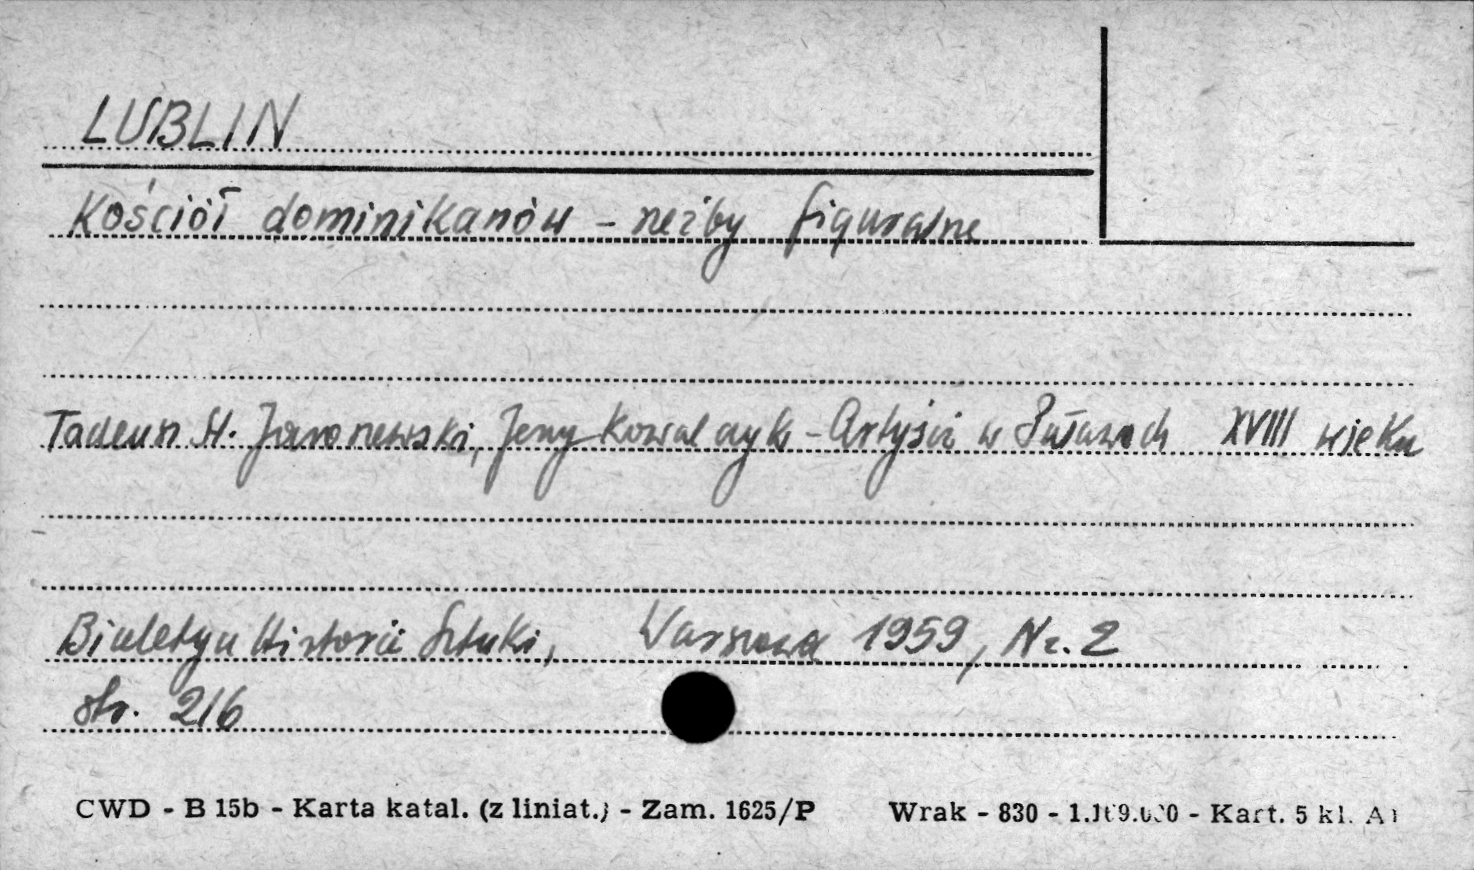 LUBLIN
Kościół dominikanów - rzeźby figuralne
Tadeusz St. Jaroszewski, Jerzy Kowalczyk - Artyści w Puławach XVIII wieku
Biuletyn Historii Sztuki, Warszawa 1959, Nr. 2
str. 216
CWD - B 15b - Karta katal. (z liniat.) - Zam. 1625/P Wrak - 830 - Kart. 5 kl.